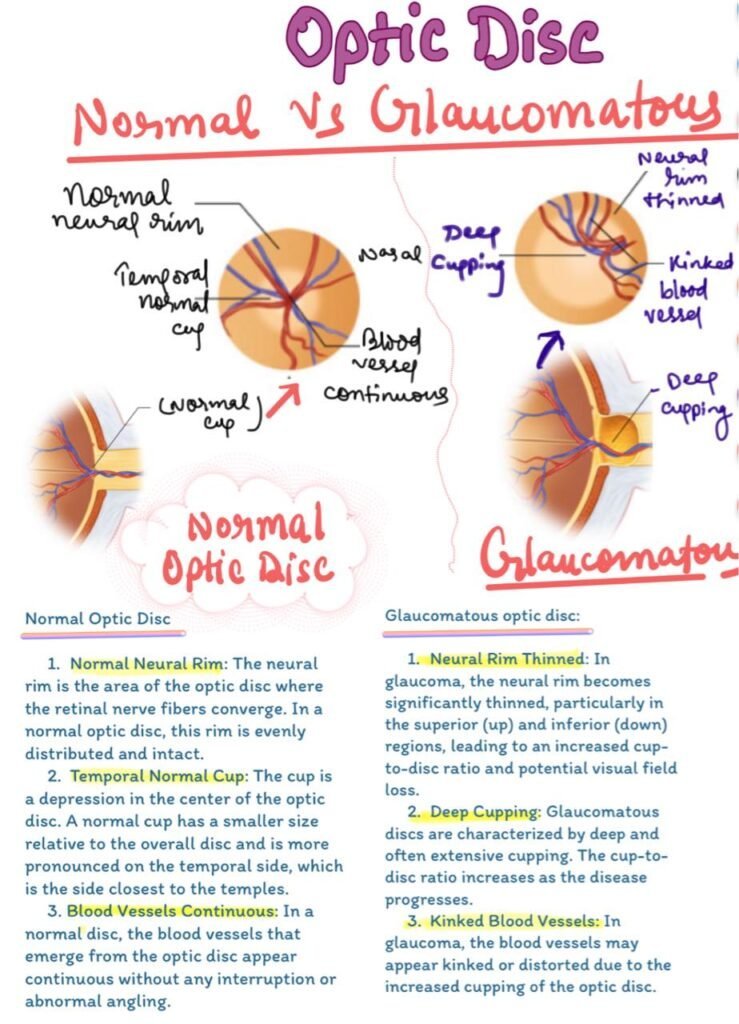 Optic Disc
Normal Vs Glaucomatous
Normal
neural rim
Temporal
normal
cup
Nasal
Blood
vessel
continuous
(Normal
cup)
Normal
Optic Disc
Neural
rim
thinned
Deep
Cupping
Kinked
blood
vessel
Deep
cupping
Glaucomatou
Normal Optic Disc
1. Normal Neural Rim: The neural
rim is the area of the optic disc where
the retinal nerve fibers converge. In a
normal optic disc, this rim is evenly
distributed and intact.
2. Temporal Normal Cup: The cup is
a depression in the center of the optic
disc. A normal cup has a smaller size
relative to the overall disc and is more
pronounced on the temporal side, which
is the side closest to the temples.
3. Blood Vessels Continuous: In a
normal disc, the blood vessels that
emerge from the optic disc appear
continuous without any interruption or
abnormal angling.
Glaucomatous optic disc:
1. Neural Rim Thinned: In
glaucoma, the neural rim becomes
significantly thinned, particularly in
the superior (up) and inferior (down)
regions, leading to an increased cup-
to-disc ratio and potential visual field
loss.
2. Deep Cupping: Glaucomatous
discs are characterized by deep and
often extensive cupping. The cup-to-
disc ratio increases as the disease
progresses.
3. Kinked Blood Vessels: In
glaucoma, the blood vessels may
appear kinked or distorted due to the
increased cupping of the optic disc.